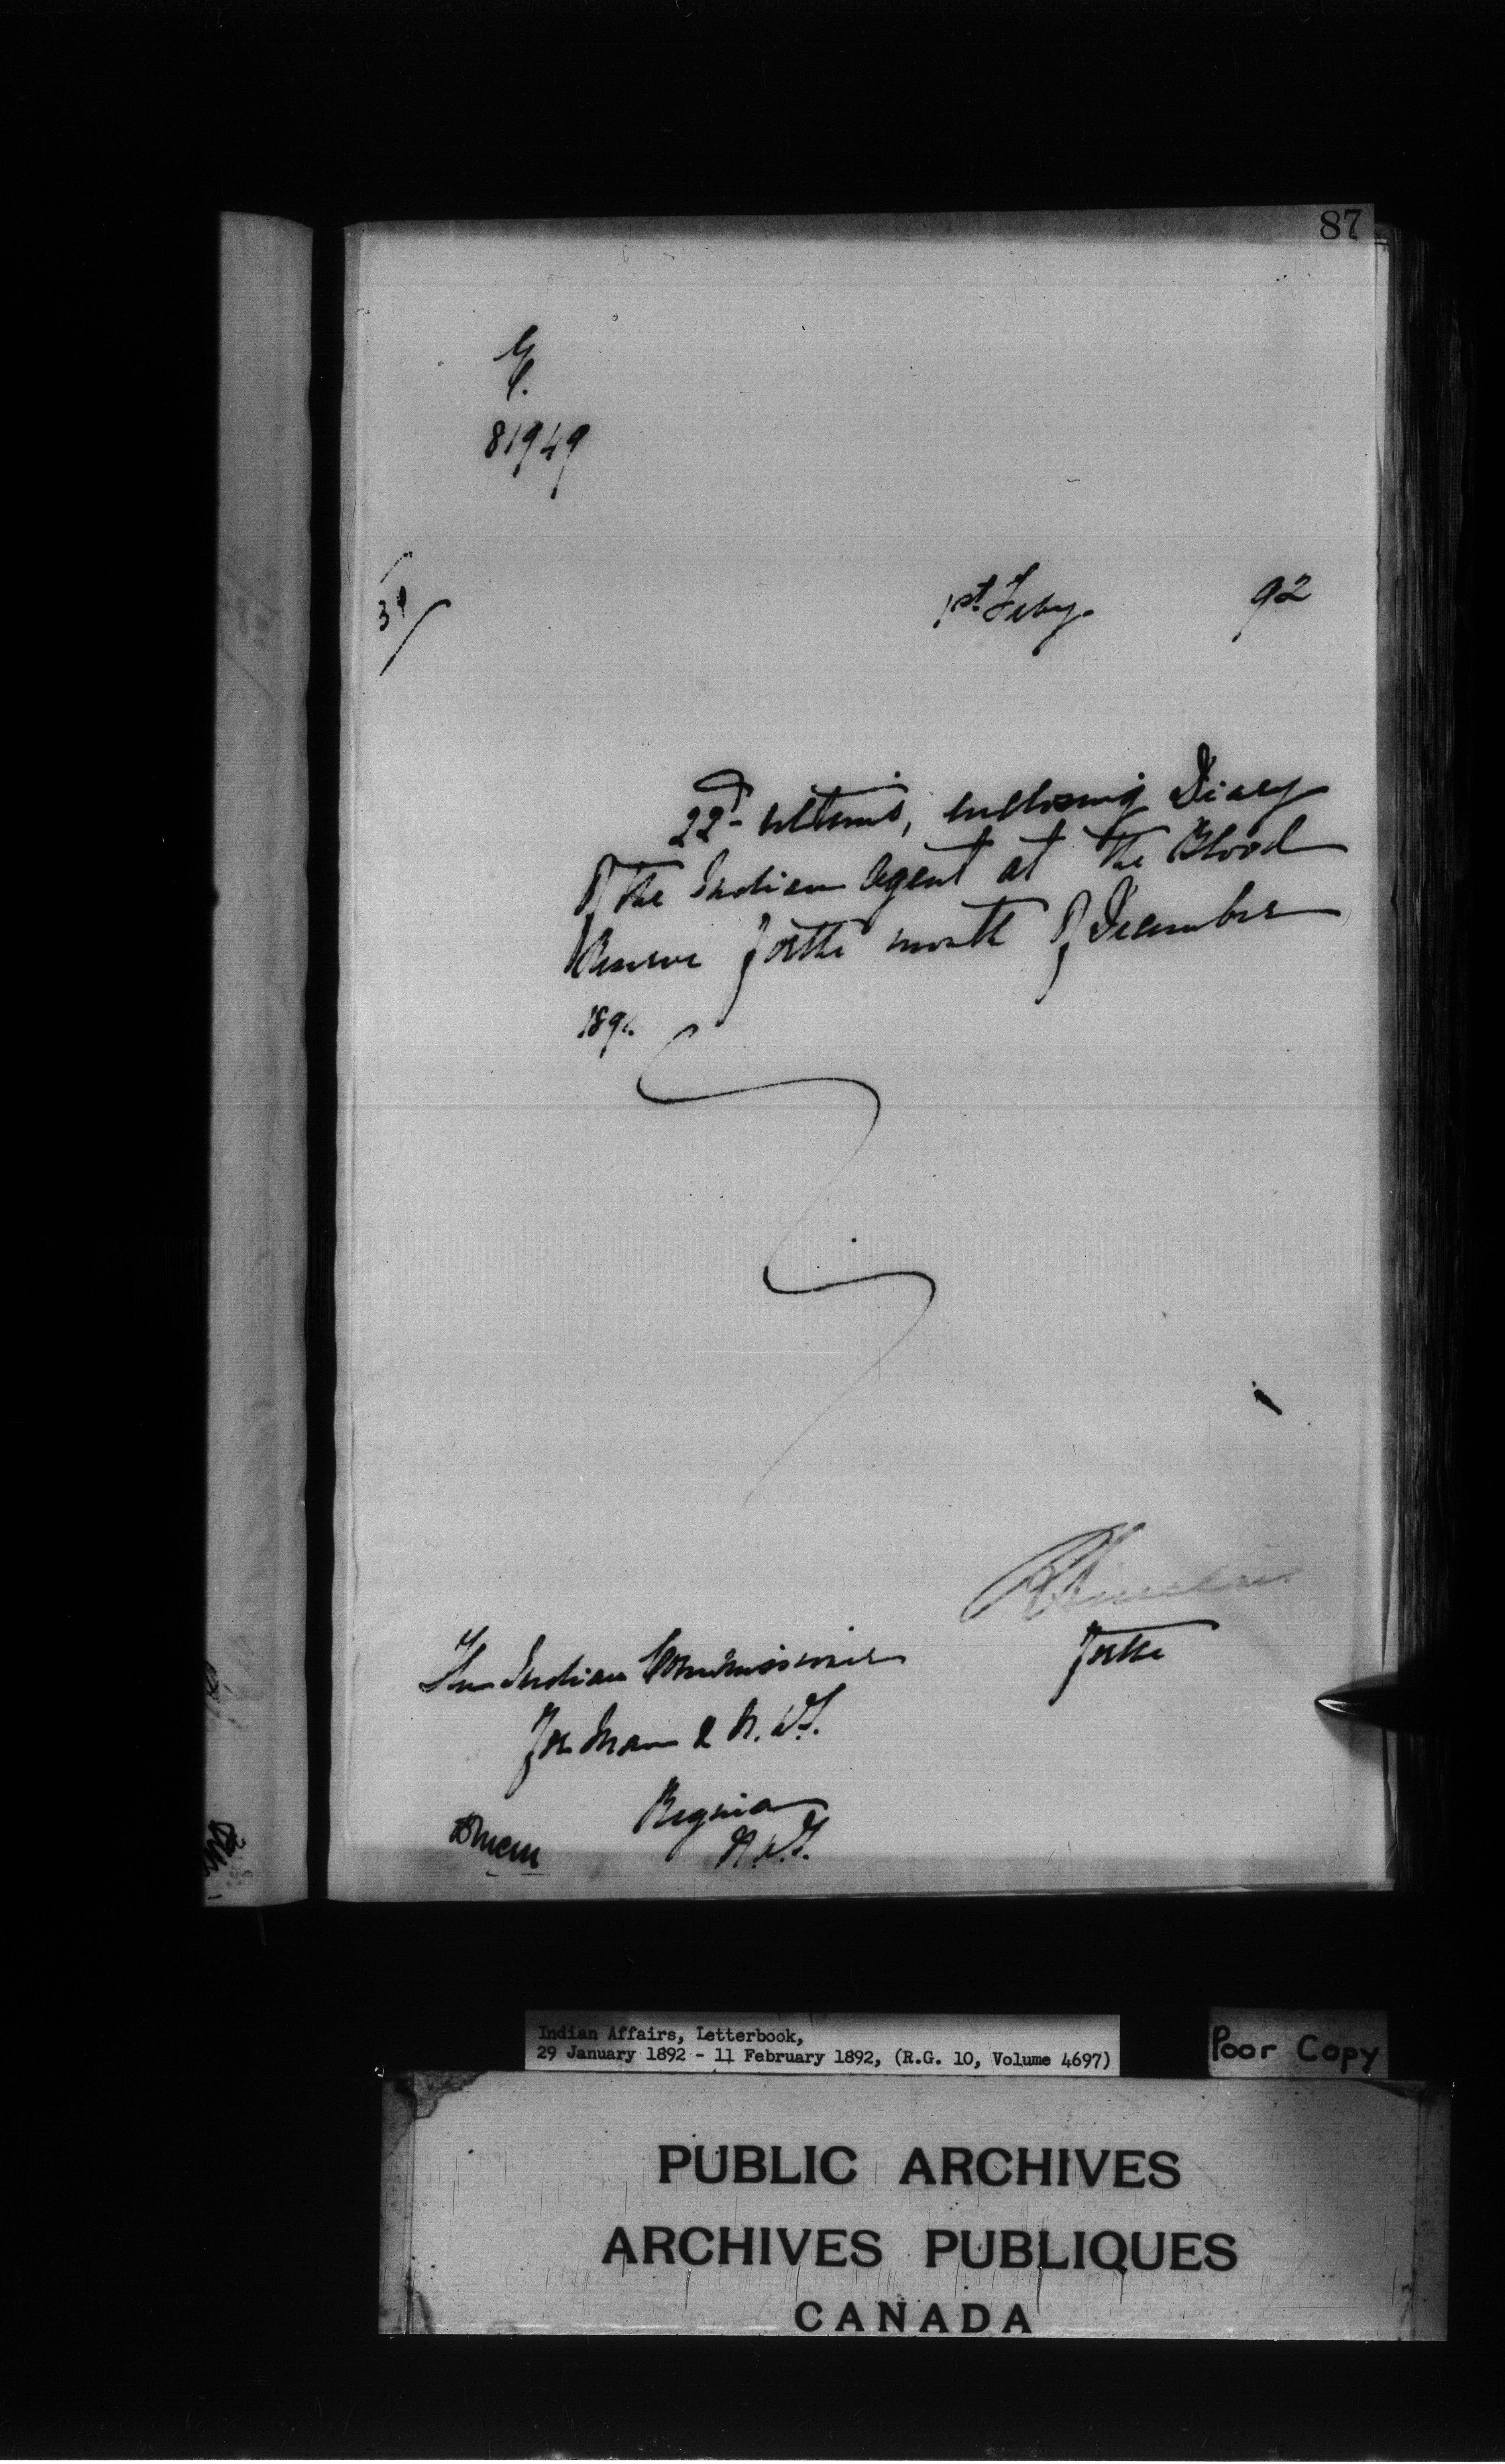 87
81949
1st Feby. 92
22d ultimo, enclosing Diary
of the Indian Agent at the Blood
Reserve for the month of December
189
The Indian Commissioner
for the
For Man & N.W.T.
Regina
N.W.T.
Indian Affairs, Letterbook,
29 January 1892 - 11 February 1892, (R.G. 10, Volume 4697)
Poor Copy
PUBLIC ARCHIVES
ARCHIVES PUBLIQUES
CANADA